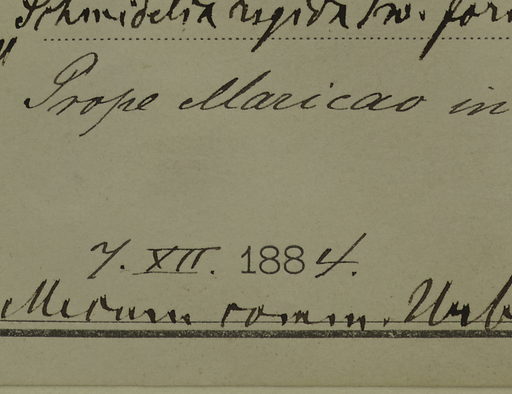 Schmidelia rigida Sw. for
Prope Maricao in
7. XII. 1884.
Mecum comm. Urb